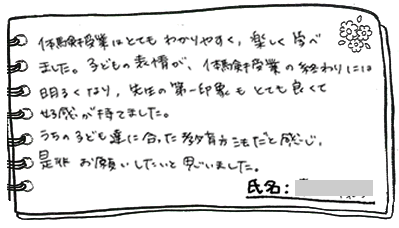 体験授業はとてもわかりやすく、楽しく学べ
ました。子どもの表情が、体験授業の終わりには
明るくなり、先生の第一印象もとても良くて
好感が持てました。
うちの子ども達に合った教育方法だと感じ、
是非お願いしたいと思いました。
氏名: